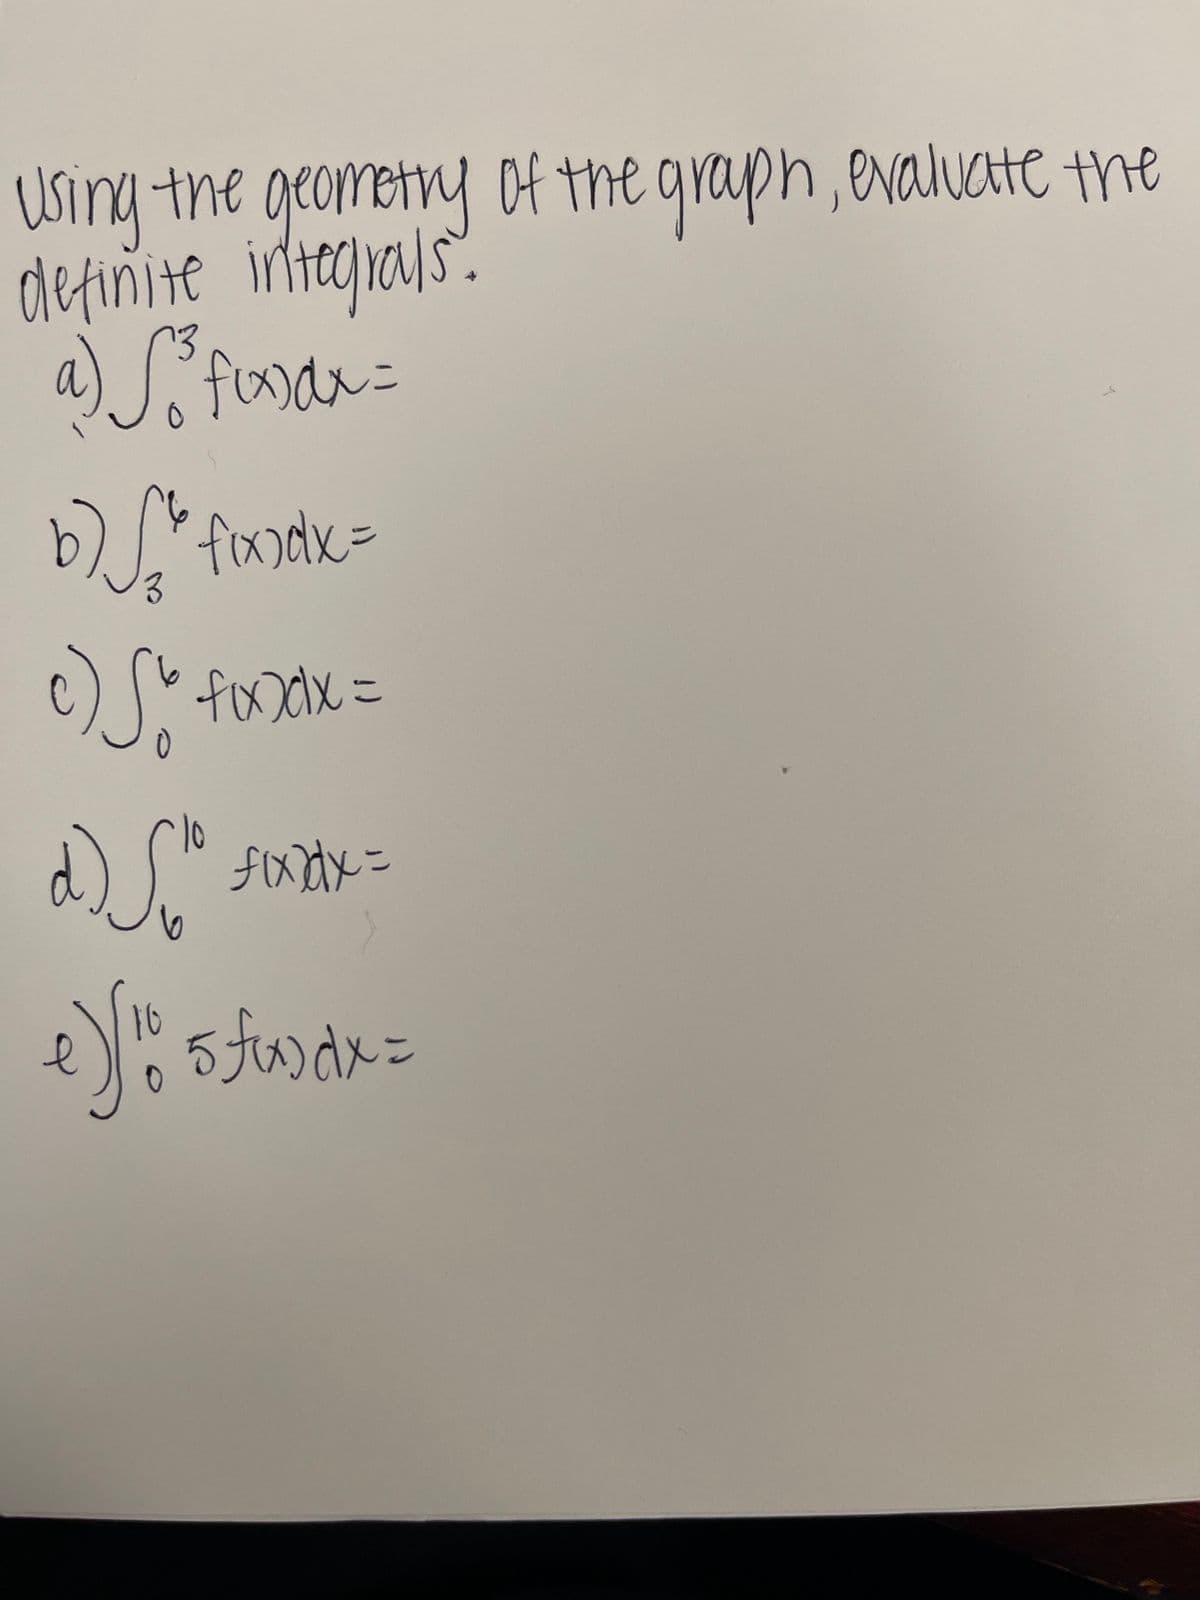 using the geometry of the graph, evaluate the
definite integrals.
a) ∫₀³ f(x)dx=
b) ∫₃⁶ f(x)dx=
c) ∫₀⁶ f(x)dx=
d) ∫₆¹⁰ f(x)dx=
e) ∫₀¹⁰ 5f(x)dx=